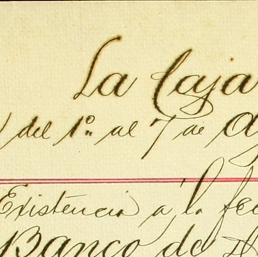 La Caja
del 1º. al 7 de
Existencia a la
Banco de